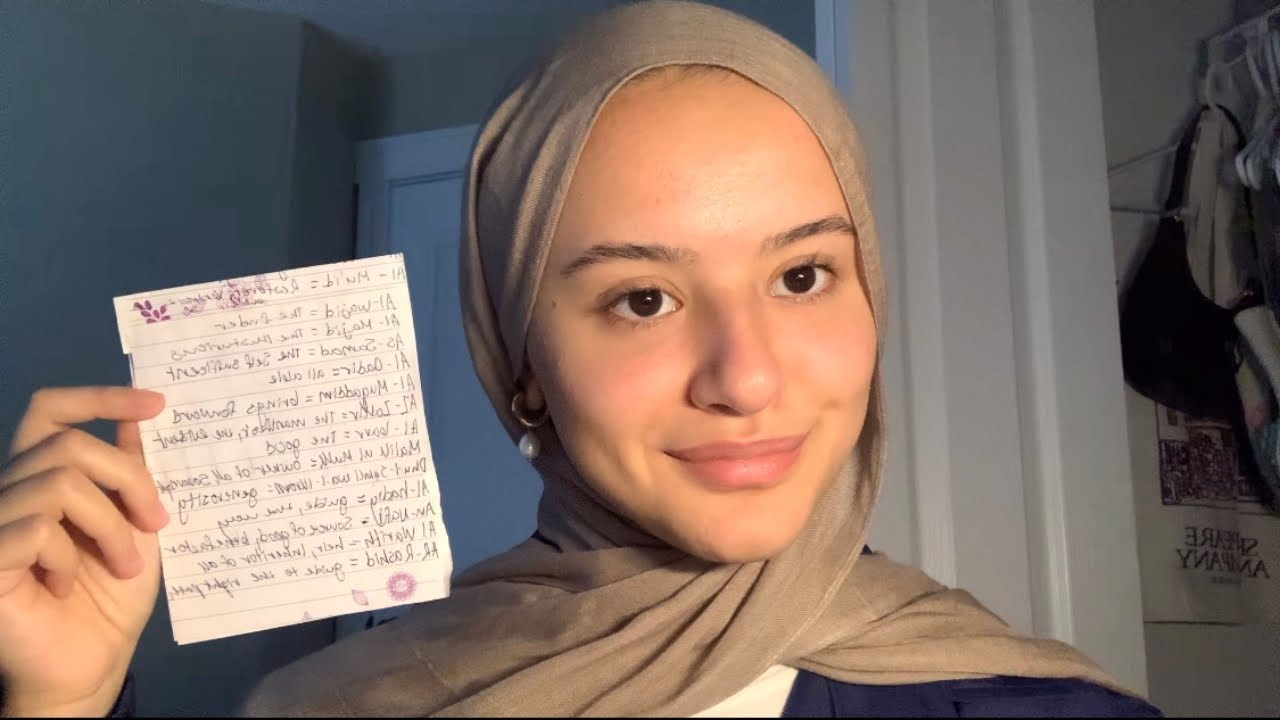 Al-Mu'id = Restorer
Al-wajid = The finder
Al-Majid = The Illustrious
As-Samad = The Self Sufficient
Al-Qadir = all able
Al-Muqaddim = brings forward
Az-Zahir = The manifest, the evident
Al-barr = The good
Malik ul Mulk = owner of all
Dhul-Jalali wal-Ikram = generosity
Al-hadiy = guide, the way
An-Nafi = Source of good, benefactor
Al Warith = heir, Inheritor of all
AR-Rashid = guide to the right path
SPEARE
MPANY